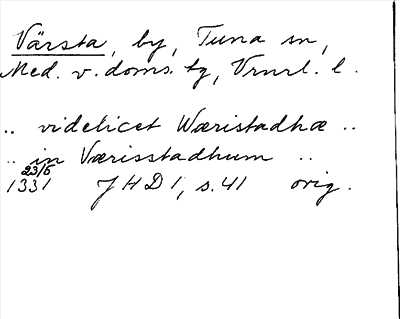 Värsta, by, Tuna sn,
Med. v. doms. tg, Vrnrl. l.
.. videlicet Wæristadhæ ..
.. in Værisstadhum ..
23/5
1331 JHD 1, s. 41 orig.